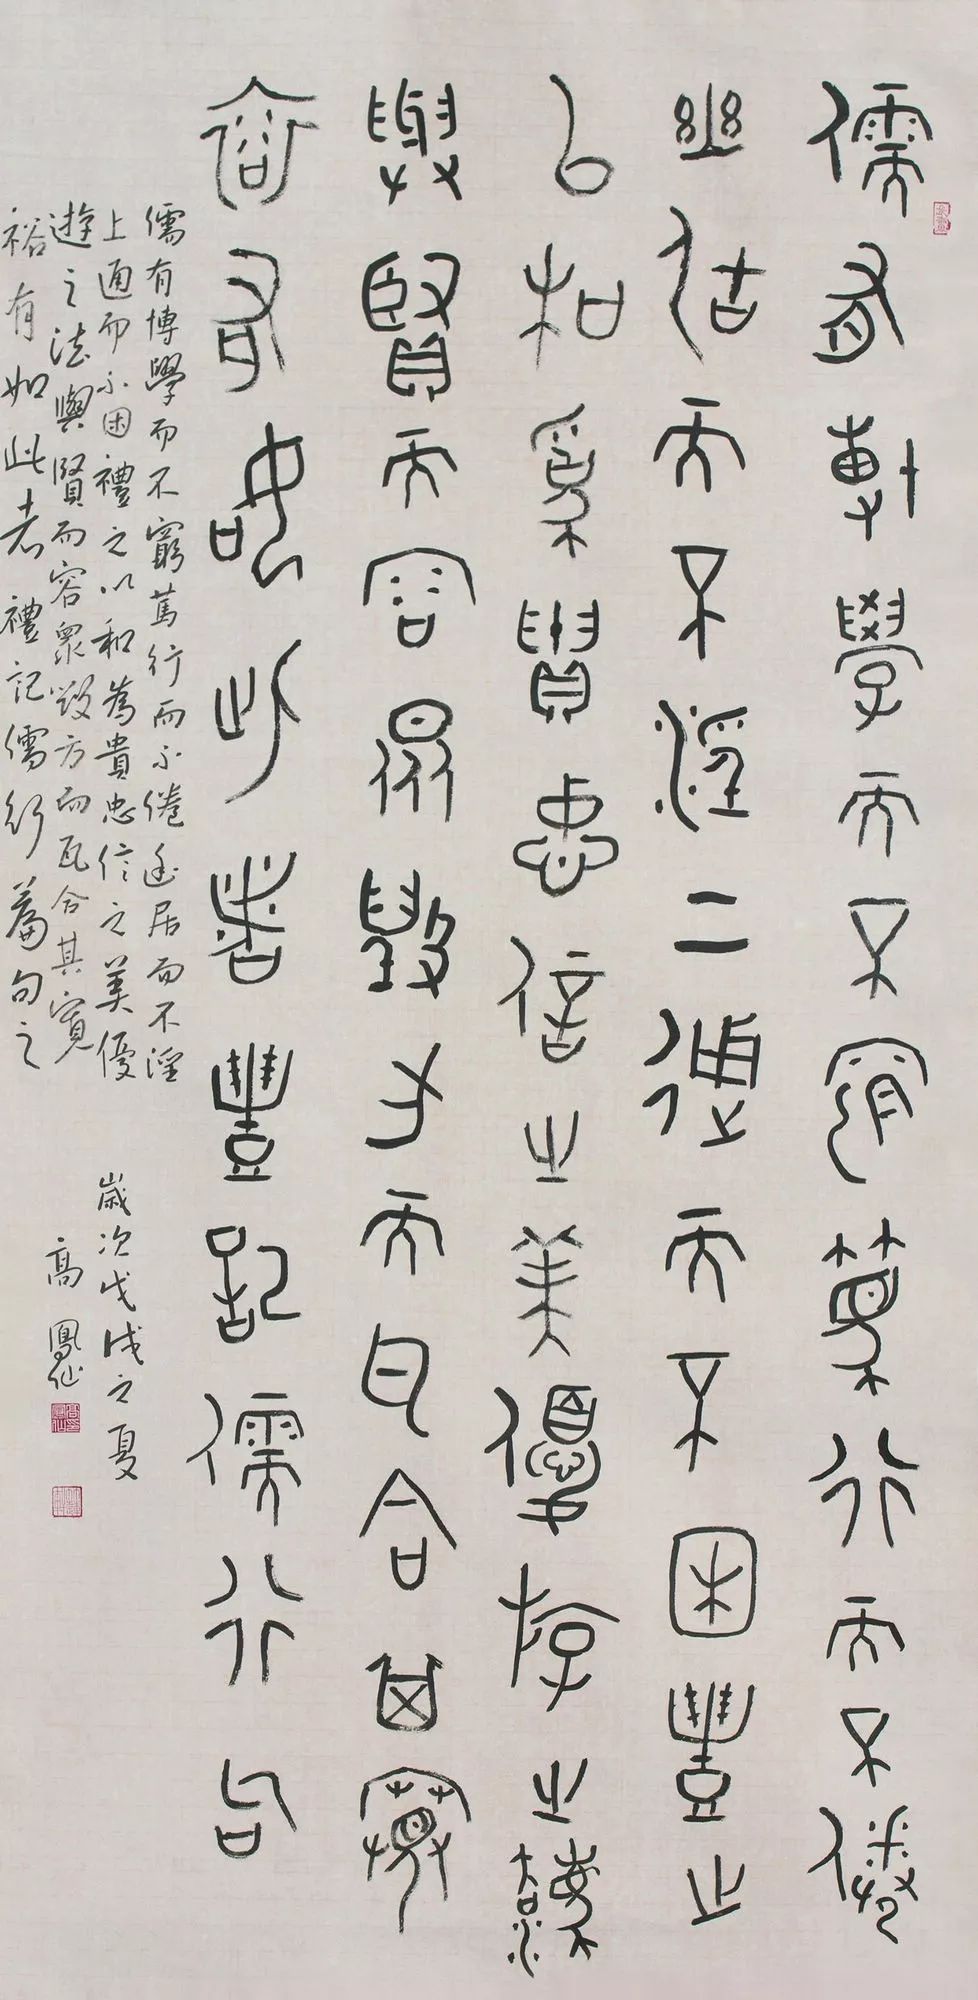 儒有博學而不窮篤行而不倦
幽居而不淫上通而不困豊之
以和為貴忠信之美優游之法
與賢而容眾毀方而瓦合其寬
裕有如此者豊記儒行句
儒有博學而不窮篤行而不倦幽居而不淫
上通而不困禮之以和為貴忠信之美優
遊之法與賢而容眾毀方而瓦合其寬
裕有如此者禮記儒行篇句之
歲次戊戌之夏
高鳳仙